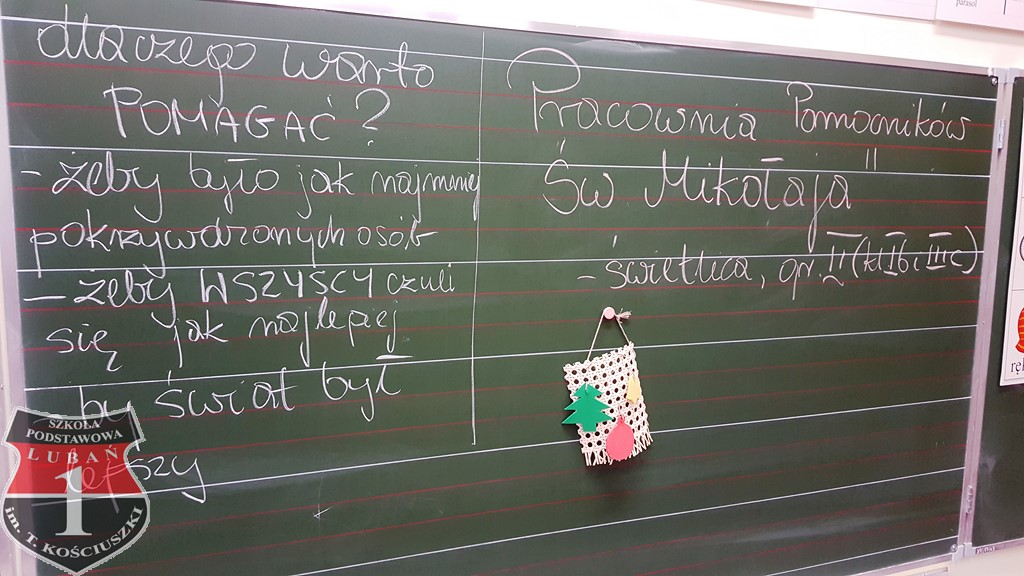 dlaczego warto
POMAGAĆ?
- żeby było jak najmniej
pokrzywdzonych osób
- żeby WSZYSCY czuli
się jak najlepiej
by świat był
lepszy
Pracownia Pomocników
Św. Mikołaja"
- świetlica, gr. II (kl. IIb i IIIc)
parasol
SZKOŁA
PODSTAWOWA
LUBAŃ
1
im. T. KOŚCIUSZKI